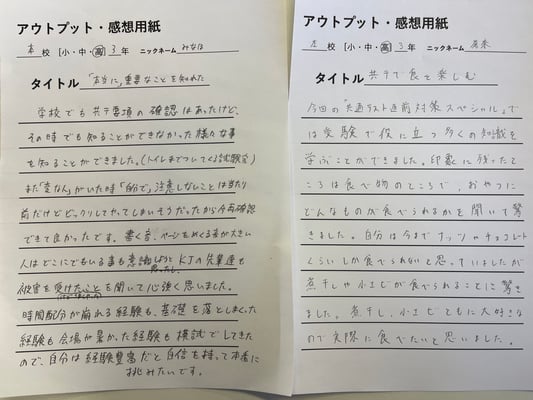 アウトプット・感想用紙
本 校 [小・中・高] 3年 ニックネーム みなほ
タイトル 「本当に」重要なことを知れた
学校でも共テ要項の確認はあったけど、
その時でも知ることができなかった様々な事
を知ることができました。(トイレまでついてくる試験官)
また「変な人」がいた時「自分で」注意しないことは当たり
前だけどビックリしてやってしまいそうだったから今再確認
できて良かったです。書く音、ページをめくる音が大きい
人はどこにでもいる事も意識しようと思ったし、KJの先輩達も
被害を受けたことを聞いて心強く思いました。
時間配分が崩れる経験も、基礎を落としまくった
経験も会場が寒かった経験も模試でしてきた
ので、自分は経験豊富だと自信を持って本番に
挑みたいです。
アウトプット・感想用紙
校 [小・中・高] 3年 ニックネーム
タイトル 共テで食を楽しむ
今回の「共通テスト直前対策スペシャル」で
は受験で役に立つ多くの知識を
学ぶことができました。印象に残ったと
ころは食べ物のところで、おやつに
どんなものが食べられるかを聞いて驚
きました。自分は今までナッツやチョコレート
くらいしか食べられないと思っていましたが
煮干しや小エビが食べられることに驚き
ました。煮干し、小エビともに大好きな
ので実際に食べたいと思いました。